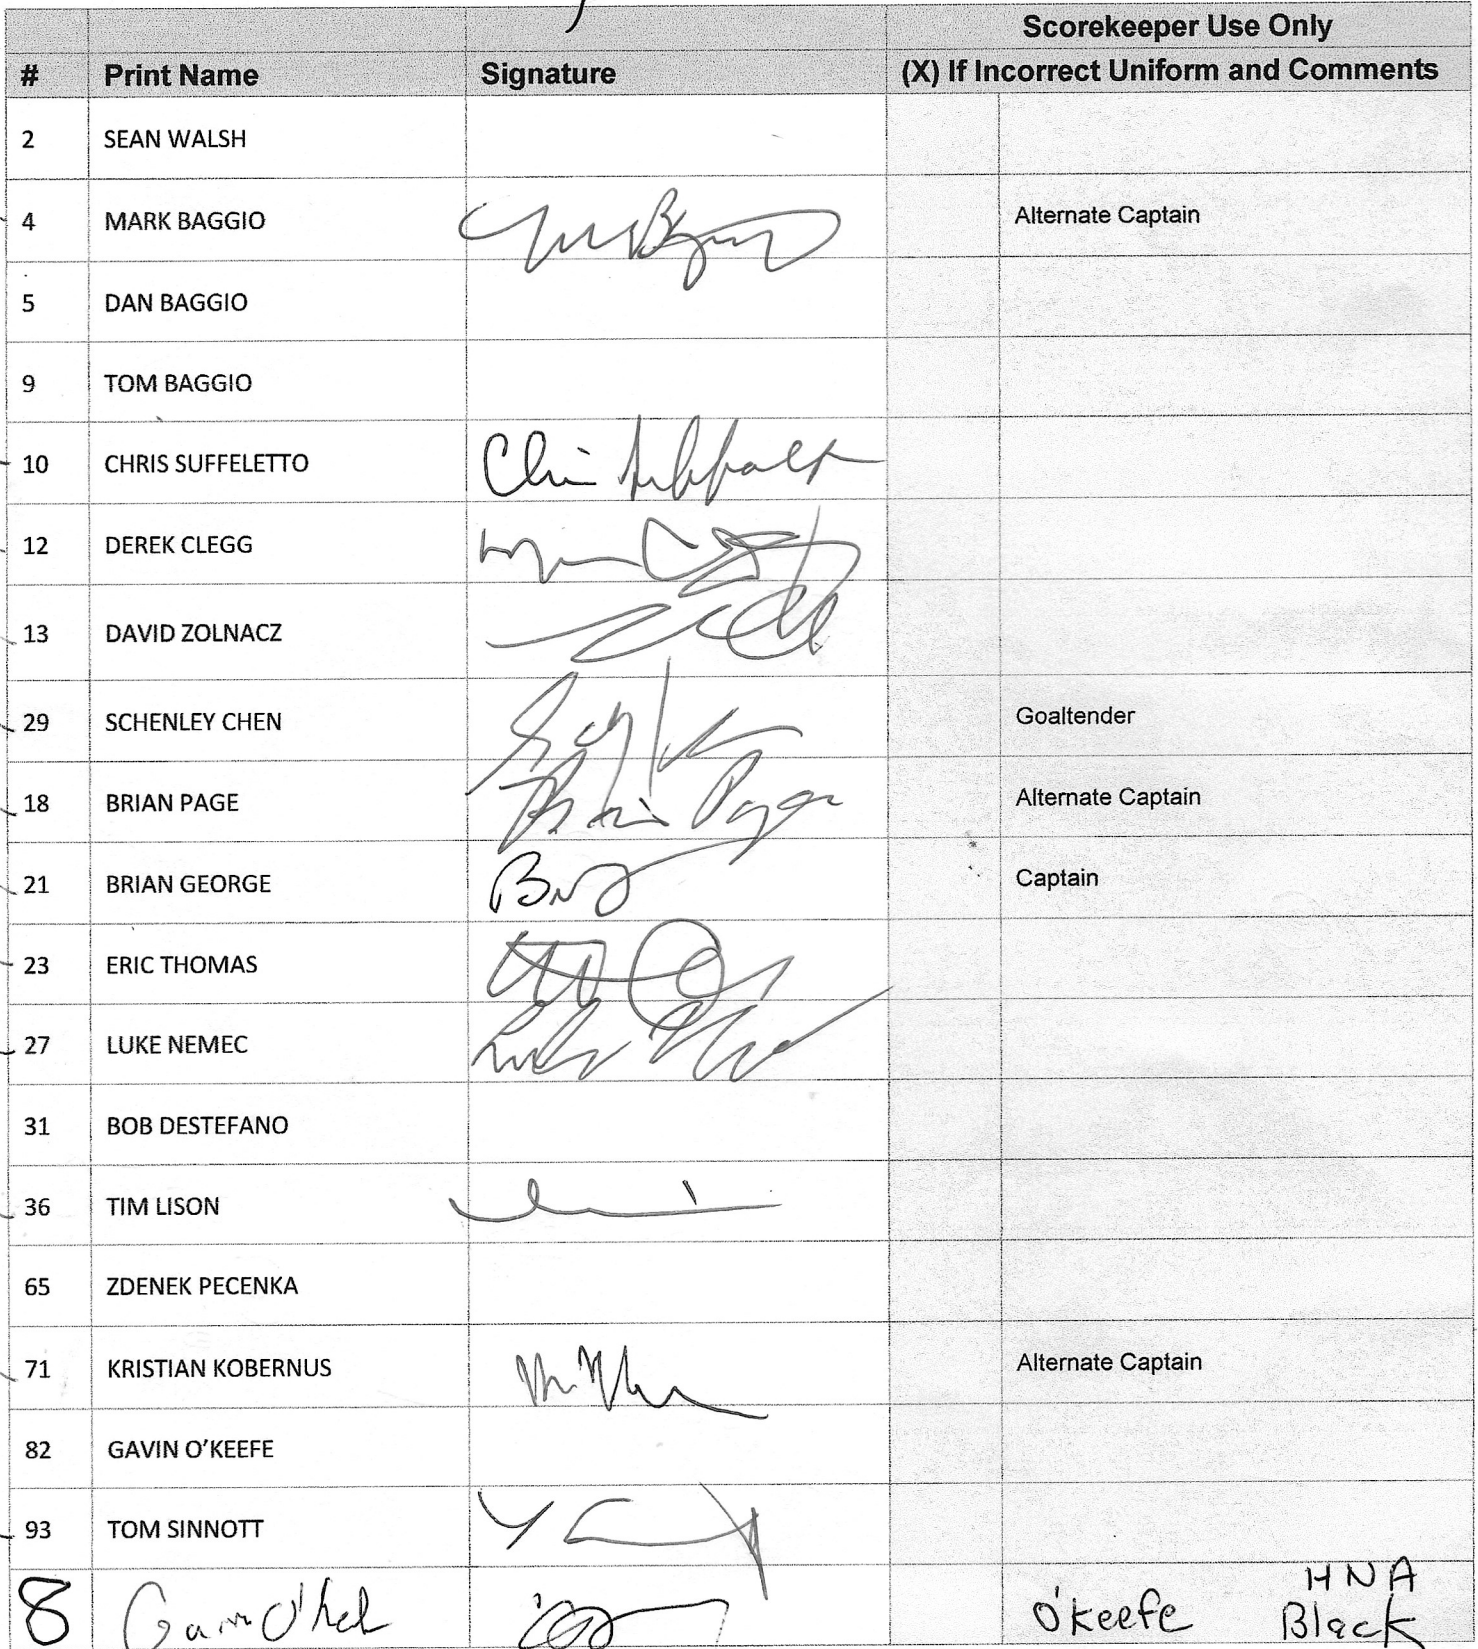 Scorekeeper Use Only
# Print Name Signature (X) If Incorrect Uniform and Comments
2 SEAN WALSH
4 MARK BAGGIO Alternate Captain
5 DAN BAGGIO
9 TOM BAGGIO
10 CHRIS SUFFELETTO
12 DEREK CLEGG
13 DAVID ZOLNACZ
29 SCHENLEY CHEN Goaltender
18 BRIAN PAGE Brian Page Alternate Captain
21 BRIAN GEORGE Captain
23 ERIC THOMAS
27 LUKE NEMEC
31 BOB DESTEFANO
36 TIM LISON
65 ZDENEK PECENKA
71 KRISTIAN KOBERNUS Alternate Captain
82 GAVIN O'KEEFE
93 TOM SINNOTT
HNA
8 O'Keefe Black